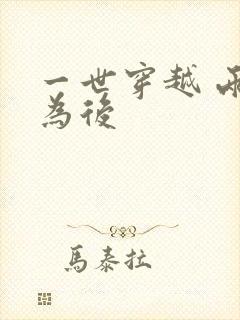 一世穿越 兩
為後
馬泰拉